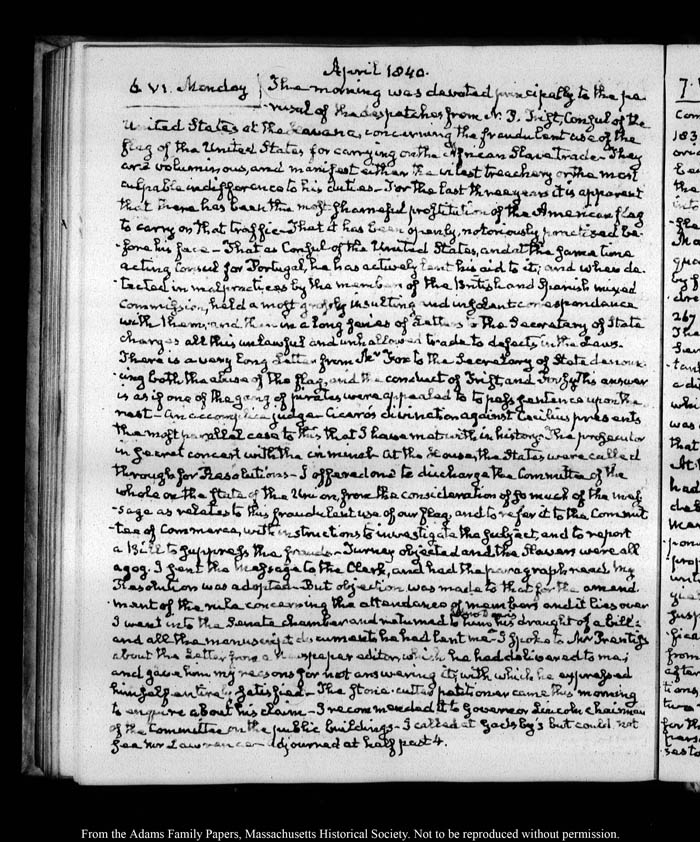 April 1840.
6. VI. Monday
The morning was devoted principally to the pe-
rusal of the despatches from N. P. Trist, Consul of the
United States at the Havana, concerning the fraudulent use of the
flag of the United States for carrying on the African Slave trade. They
are voluminous, and manifest either the vilest treachery or the most
culpable indifference to his duties. For the last three years it is apparent
that there has been the most shameful prostitution of the American flag
to carry on that traffic. That it has been openly, notoriously practised be-
-fore his face. That as Consul of the United States, and at the same time
acting Consul for Portugal, he has actively lent his aid to it; and when de-
-tected in malpractices by the members of the British and Spanish mixed
Commission, held a most grossly insulting and insolent correspondence
with them, and then in a long series of Letters to the Secretary of State
charges all this unlawful and unhallowed trade to defects in the Laws.
There is a very long Letter from Mr. Fox to the Secretary of State denoun-
-cing both the abuse of the flag, and the conduct of Trist and Forsyth's answer
is as if one of the gang of pirates were appealed to to pass sentence upon the
rest - an accomplice judge. Cicero's divination against Cecilius presents
the most parallel case to this that I have met with in history. The prosecutor
in secret concert with the criminal. At the House, the States were called
through for Resolutions. I offered one to discharge the Committee of the
whole on the state of the Union, from the consideration of so much of the mes-
-sage as relates to this fraudulent use of our flag, and to refer it to the Commit-
-tee of Commerce, with instructions to investigate the subject, and to report
a Bill to suppress the frauds. Turney objected and the Slavers were all
agog. I sent the Message to the Clerk, and had the paragraph read. My
Resolution was adopted. But objection was made to that for the amend-
-ment of the rule concerning the attendance of members and it lies over
I went into the Senate chamber and returned to him his draught of a bill:
and all the manuscript documents he had lent me. I spoke to Mr Prentiss
about the Letter from a Newspaper editor, which he had delivered to me;
and gave him my reasons for not answering it; with which he expressed
himself entirely satisfied. The Stone-cutter petitioner came this morning
to enquire about his claim. I recommended it to Governor Lincoln chairman
of the Committee on the public buildings. I called at Gadsby's but could not
see Mr Lawrence adjourned at half past 4.
7.
From the Adams Family Papers, Massachusetts Historical Society. Not to be reproduced without permission.